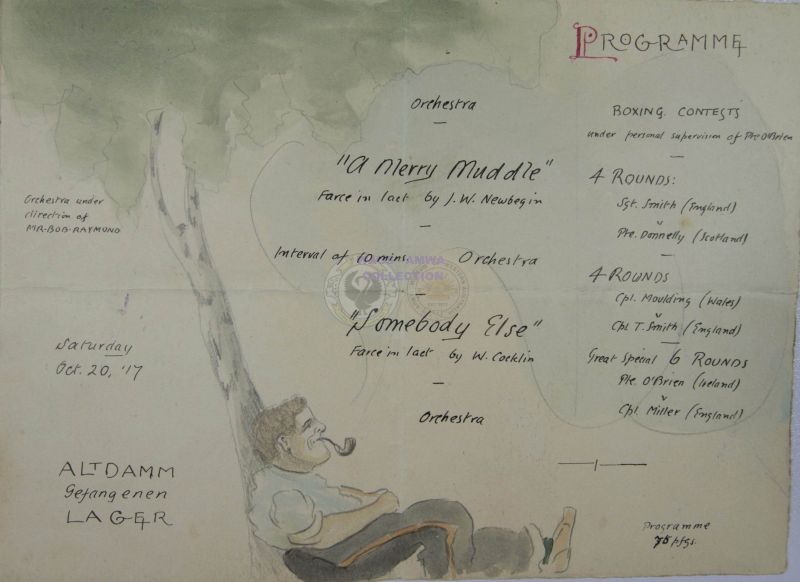 PROGRAMME
Orchestra under
direction of
MR·BOB·RAYMOND
Saturday
Oct. 20, '17
ALTDAMM
Gefangenen
LAGER
Orchestra
"A Merry Muddle"
Farce in 1 act by J. W. Newbegin
Interval of 10 mins. Orchestra
AMWA
COLLECTION
"Somebody Else"
Farce in 1 act by W. Cocklin
Orchestra
BOXING CONTESTS
under personal supervision of Pte O'Brien
4 ROUNDS:
Sgt. Smith (England)
v
Pte. Donnelly (Scotland)
4 ROUNDS
Cpl. Moulding (Wales)
v
Cpl T. Smith (England)
Great Special 6 ROUNDS
Pte. O'Brien (Ireland)
v
Cpl. Miller (England)
Programme
75 pfgs.